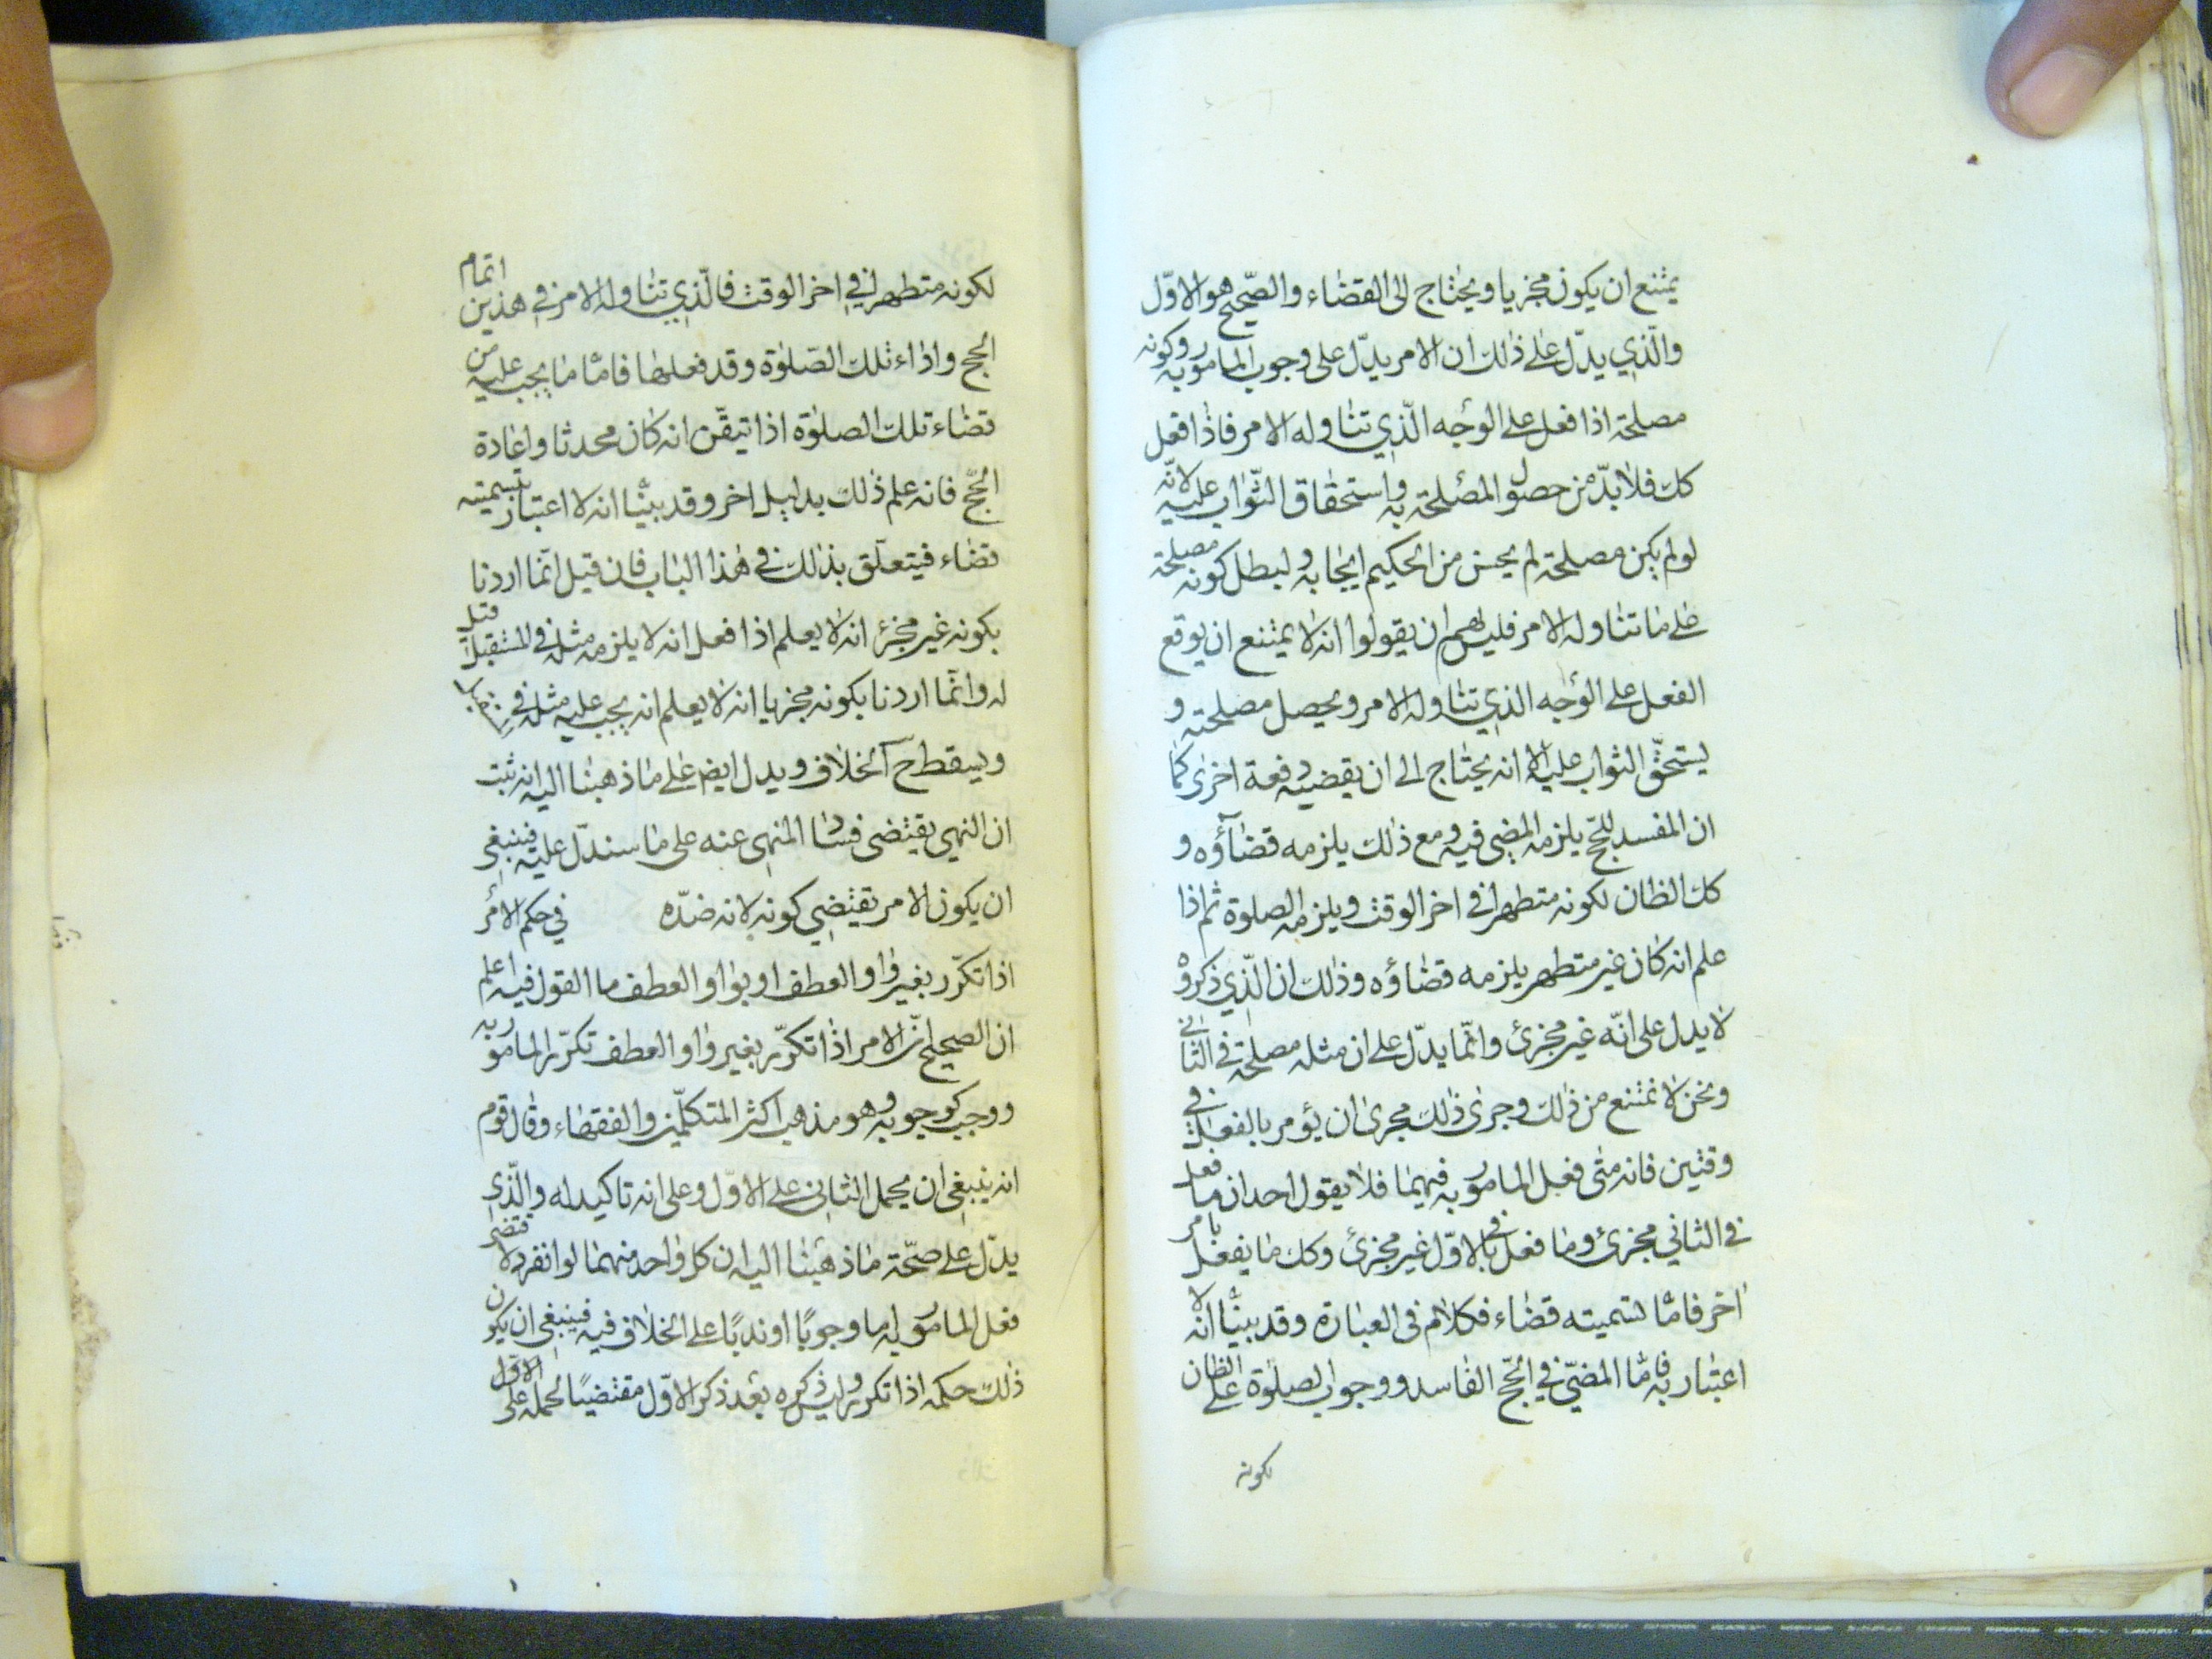 يمتنع ان يكون مجزيا ويحتاج الى القضاء والصحيح هو الاوّل
والّذي يدلّ على ذلك ان الامر يدلّ على وجوب المامور به وكونه
مصلحة اذا فعل على الوجه الّذي تناوله الامر فاذا فعل
كك فلا بدّ من حصول المصلحة به واستحقاق الثّواب عليه لانّه
لو لم يكن مصلحة لم يحسن من الحكيم ايجابه ولبطل كونه مصلحة
على ما تناوله الامر فليس لهم ان يقولوا انه لا يمتنع ان يوقع
الفعل على الوجه الذي تناوله الامر ويحصل مصلحته و
يستحقّ الثواب عليه الا انه يحتاج الى ان يقضيه دفعة اخرى كما
ان المفسد للحجّ يلزمه المضي فيه ومع ذلك يلزمه قضاؤه و
كك الظان لكونه متطهرا في اخر الوقت ويلزمه الصلوة ثم اذا
علم انه كان غير متطهر يلزمه قضاؤه وذلك ان الّذي ذكروه
لا يدل على انّه غير مجزئ وانّما يدلّ على ان مثله مصلحة في الثاني
ونحن لا نمتنع من ذلك وجرى ذلك مجرى ان يؤمر بالفعل في
وقتين فانه متى فعل المامور به فيهما فلا يقول احد ان ما فعل
في الثاني مجزئ وما فعل في الاوّل غير مجزئ وكك ما يفعل بامر
اخر فامّا تسميته قضاء فكلام في العبارة وقد بينّا انه لا
اعتبار به فامّا المضيّ في الحجّ الفاسد ووجوب الصلوة على الظان
لكونه
لكونه متطهرا في اخر الوقت فالّذي تناوله الامر في هذين اتمام
الحج واداء تلك الصّلوة وقد فعلها فامّا ما يجب عليه من
قضاء تلك الصلوة اذا تيقّن انه كان محدثا واعادة
الحجّ فانه علم ذلك بدليل اخر وقد بينّا انه لا اعتبار بتسميته
قضاء فيتعلّق بذلك في هذا الباب فان قيل انّما اردنا
بكونه غير مجزئ انه لا يعلم اذا فعل انه لا يلزمه مثله في المستقبل قيل
له وانّما اردنا بكونه مجزيا انه لا يعلم انه يجب عليه مثله في
ويسقط ح الخلاف ويدل ايض على ما ذهبنا اليه انه ثبت
ان النهي يقتضى فساد المنهى عنه على ما سندلّ عليه فينبغى
ان يكون الامر يقتضي كونه لانه ضدّه في حكم الامر
اذا تكرّر بغير واو العطف او بواو العطف ما القول فيه اعلم
ان الصحيح انّ الامر اذا تكرّر بغير واو العطف تكرّر المامور به
ووجب كوجوبه وهو مذهب اكثر المتكلّمين والفقهاء وقال قوم
انه ينبغى ان يحمل الثاني على الاوّل وعلى انه تاكيد له والّذي
يدلّ على صحّة ما ذهبنا اليه ان كل واحد منهما لو انفرد لاقتضى
فعل المامور به اما وجوبًا او ندبًا على الخلاف فيه فينبغى ان يكون
ذلك حكمه اذا تكرر وليس ذكره بعد ذكر الاوّل مقتضيًا لحمله على الاوّل